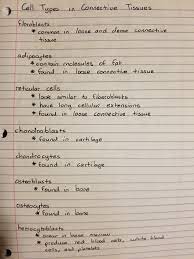 Cell Types in Connective Tissues
fibroblasts
* common in loose and dense connective
tissue
adipocytes
* contain molecules of fat
* found in connective tissues
reticular cells
* look similar to fiberoblasts
* have long cellular extensions
* found in loose connective tissue
chondroblasts
* found in cartilage
chondrocytes
* found in cartilage
osteoblasts
* found in bone
osteocytes
* found in bone
hemocytoblasts
* occur in bone marrow
* produce red blood cells, white blood
cells, and platelets